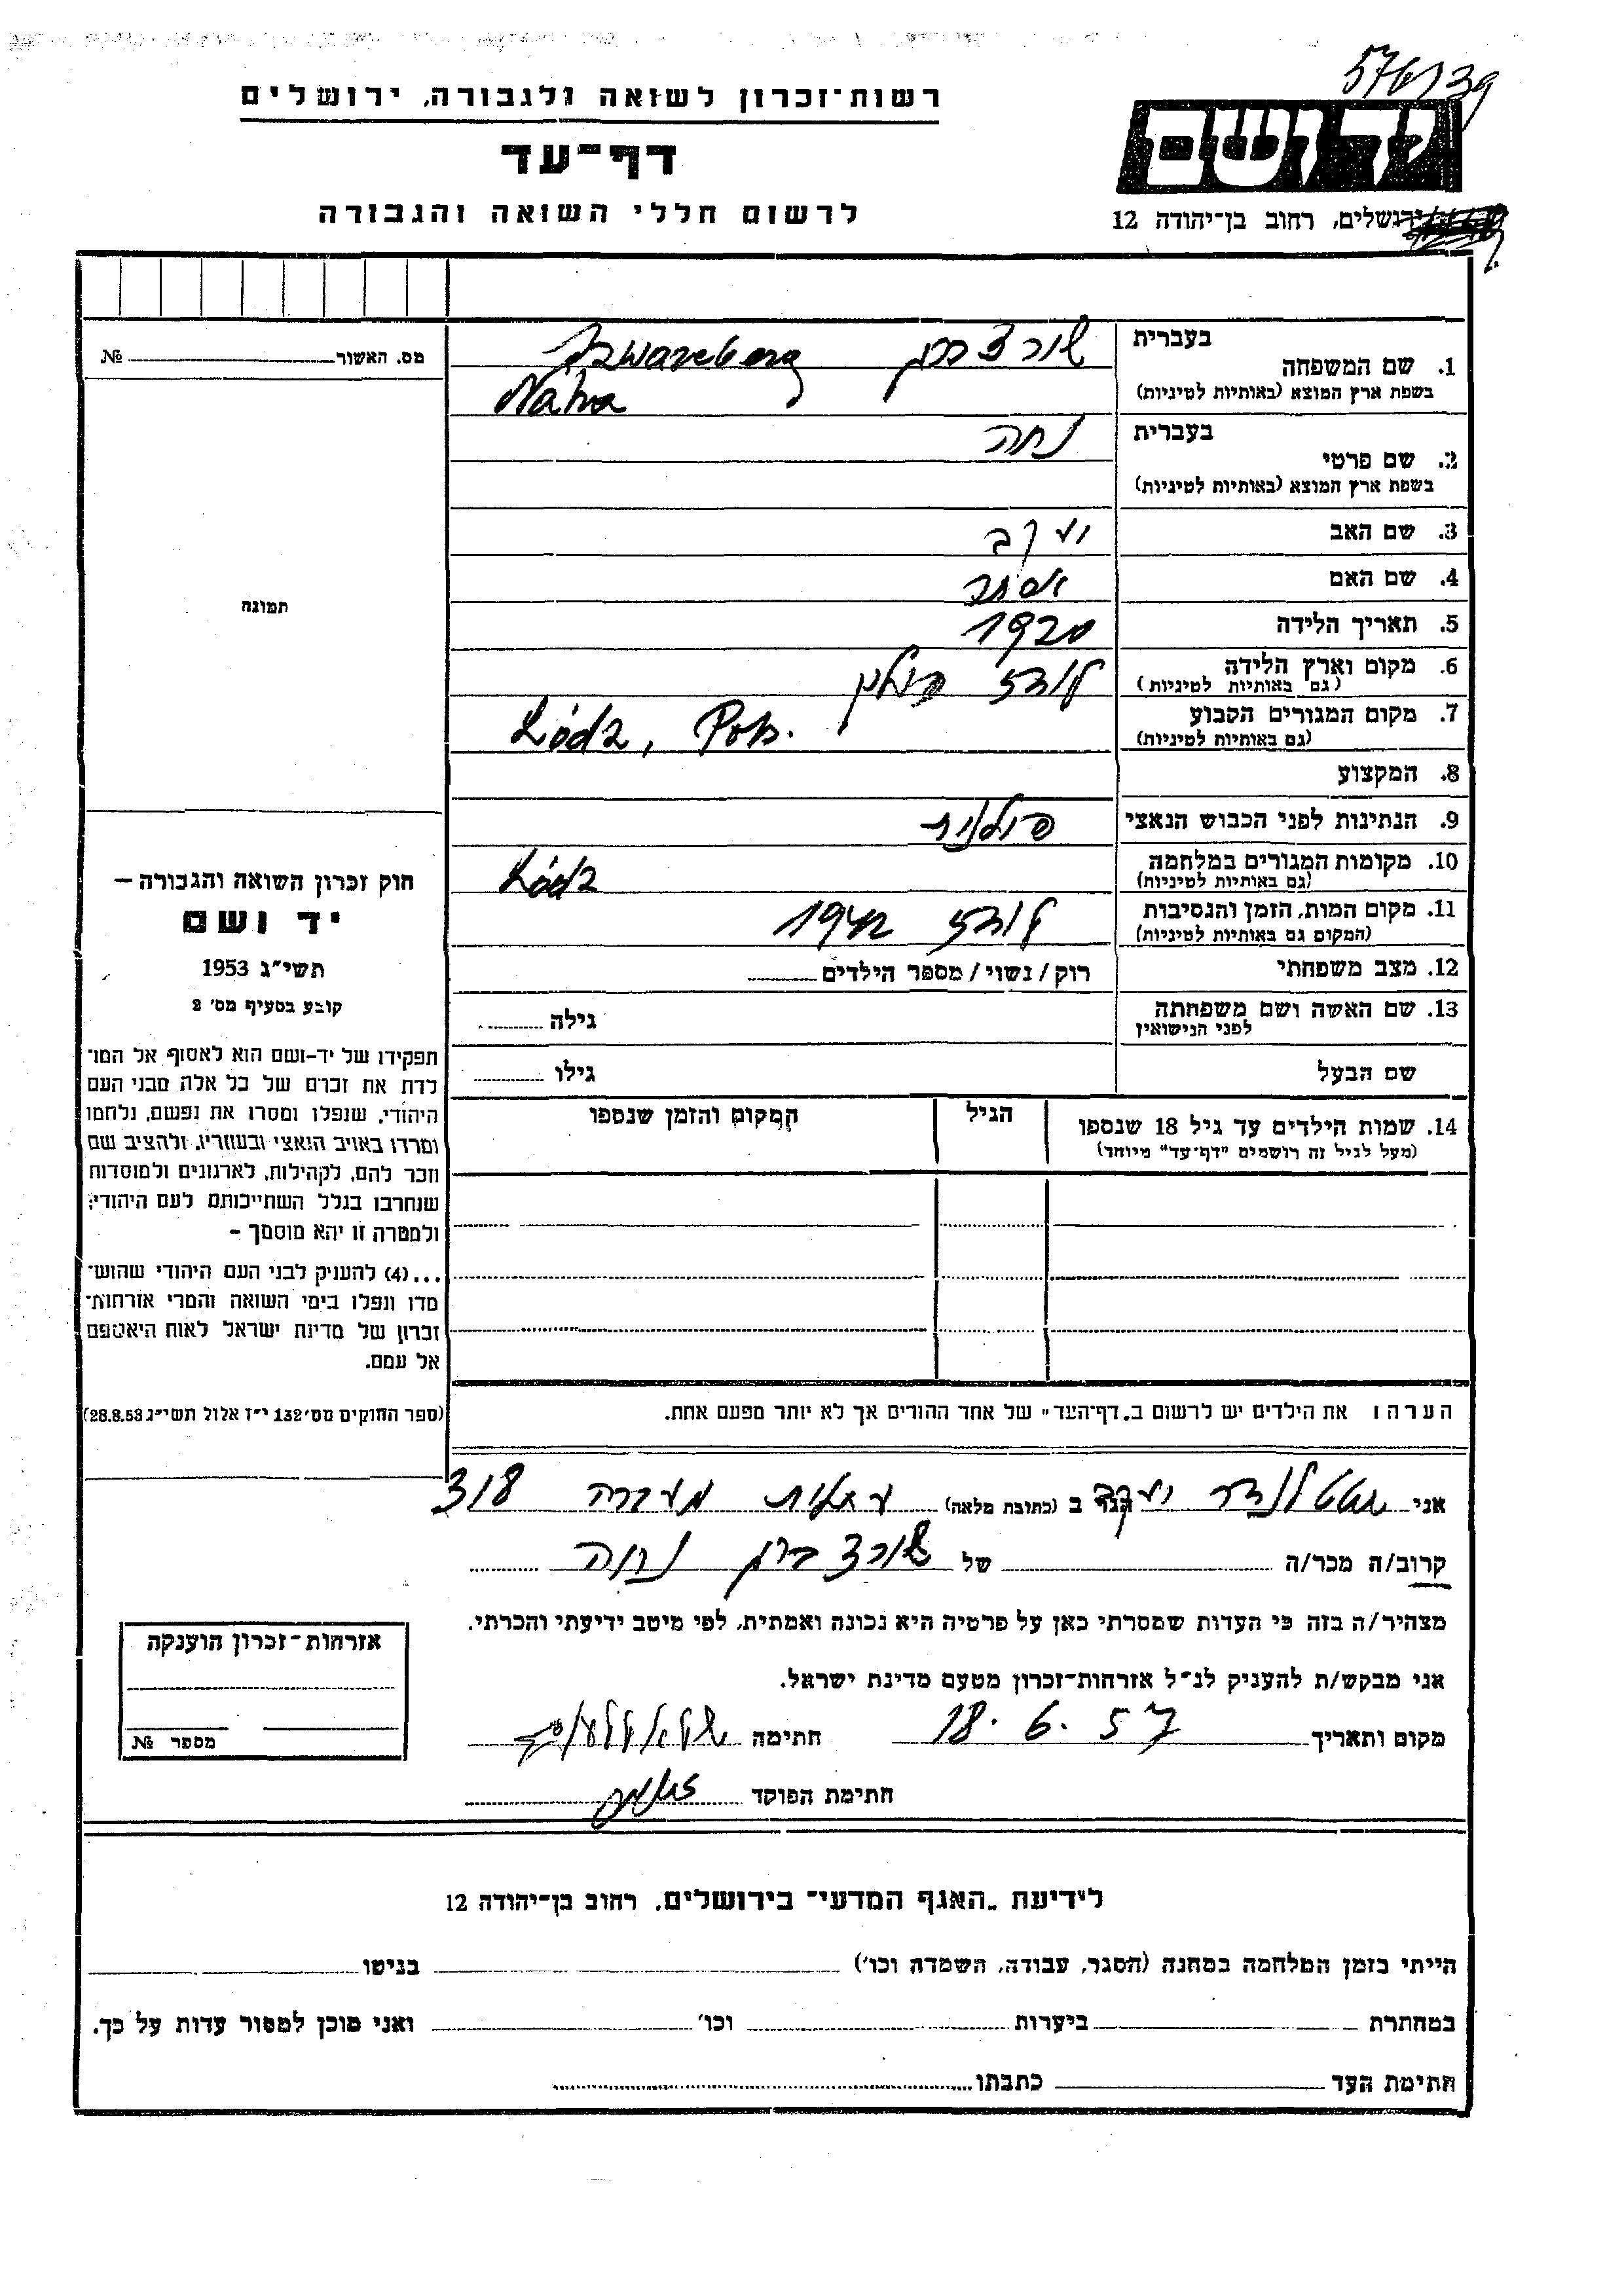 רשות-זכרון לשואה ולגבורה, ירושלים
דף-עד
לרשום חללי השואה והגבורה
יד ושם
ירושלים, רחוב בן-יהודה 12
מס. האשור № 
1. שם המשפחה בעברית שורצברג
בשפת ארץ המוצא (באותיות לטיניות) Szwarcberg
Naha
2. שם פרטי בעברית נחה
בשפת ארץ המוצא (באותיות לטיניות)
3. שם האב יעקב
4. שם האם אסתר
5. תאריך הלידה 1920
6. מקום וארץ הלידה לודז פולין
(גם באותיות לטיניות)
7. מקום המגורים הקבוע Łódz, Pol.
(גם באותיות לטיניות)
8. המקצוע
9. הנתינות לפני הכבוש הנאצי פולנית
10. מקומות המגורים במלחמה Łódz
(גם באותיות לטיניות)
11. מקום המות, הזמן והנסיבות לודז 1942
(המקום גם באותיות לטיניות)
12. מצב משפחתי רוק/נשוי/מספר הילדים
13. שם האשה ושם משפחתה גילה
לפני הנישואין
שם הבעל גילו
14. שמות הילדים עד גיל 18 שנספו הגיל המקום והזמן שנספו
(מעל לגיל זה רושמים "דף-עד" מיוחד)
הערה: את הילדים יש לרשום ב"דף-העד" של אחד ההורים אך לא יותר מפעם אחת.
תמונה
חוק זכרון השואה והגבורה –
יד ושם
תשי"ג 1953
קובע בסעיף מס' 2
תפקידו של יד-ושם הוא לאסוף אל המו־
לדת את זכרם של כל אלה מבני העם
היהודי, שנפלו ומסרו את נפשם, נלחמו
ומרדו באויב הנאצי ובעוזריו, ולהציב שם
וזכר להם, לקהילות, לארגונים ולמוסדות
שנחרבו בגלל השתייכותם לעם היהודי;
ולמטרה זו יהא מוסמך –
...(4) להעניק לבני העם היהודי שהוש־
מדו ונפלו בימי השואה והמרי אזרחות־
זכרון של מדינת ישראל לאות היאספם
אל עמם.
(ספר החוקים מס' 132 י"ז אלול תשי"ג 28.8.53)
אני יעקב הגר ב (כתובת מלאה) מעברה 318
קרוב/ה מכר/ה של שורצברג נחה
מצהיר/ה בזה כי העדות שמסרתי כאן על פרטיה היא נכונה ואמתית, לפי מיטב ידיעתי והכרתי.
אני מבקש/ת להעניק לנ"ל אזרחות-זכרון מטעם מדינת ישראל.
מקום ותאריך 18. 6. 57 חתימה
חתימת הפוקד
אזרחות-זכרון הוענקה
מספר №
לידיעת "האגף המדעי" בירושלים, רחוב בן-יהודה 12
הייתי בזמן המלחמה במחנה (הסגר, עבודה, השמדה וכו') בגיטו
במחתרת ביערות וכו' ואני מוכן למסור עדות על כך.
חתימת העד כתבתו